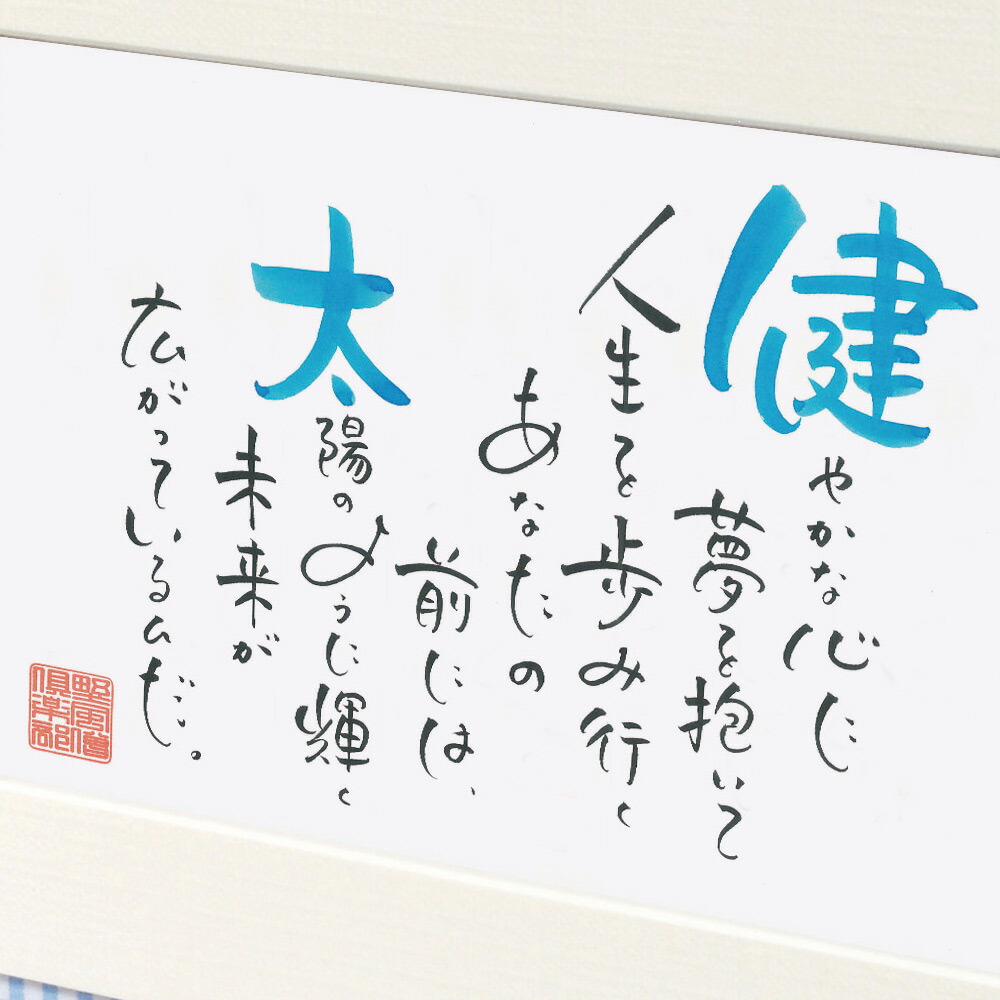 健やかな心に
夢を抱いて
人生を歩み行く
あなたの
前には、
太陽のように輝く
未来が
広がっているんだ。
倶楽部